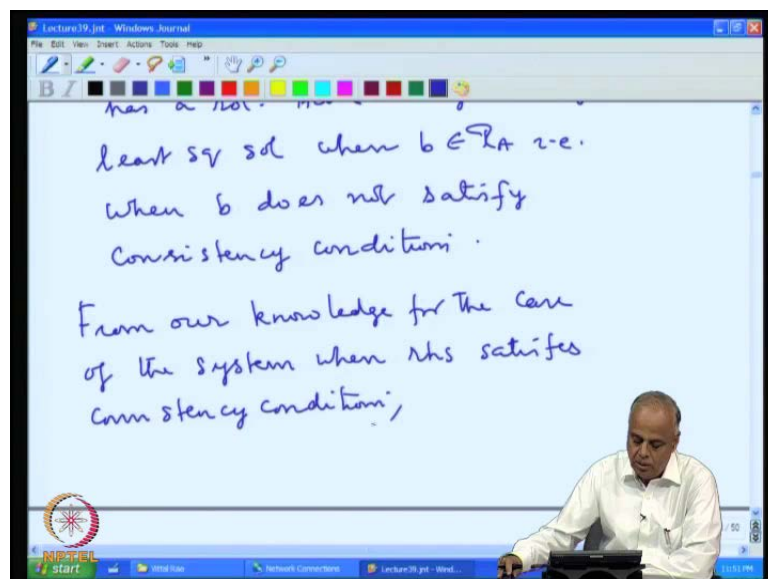 Lecture39.jnt - Windows Journal
File Edit View Insert Actions Tools Help
B I
has a sol.
least sq sol when b ∈ R_A i.e.
when b does not satisfy
consistency conditions.
From our knowledge for the case
of the system when rhs satisfes
comstency conditions,
/ 50
NPTEL
start Vittal Rao Network Connections Lecture39.jnt - Wind... 11:51 PM